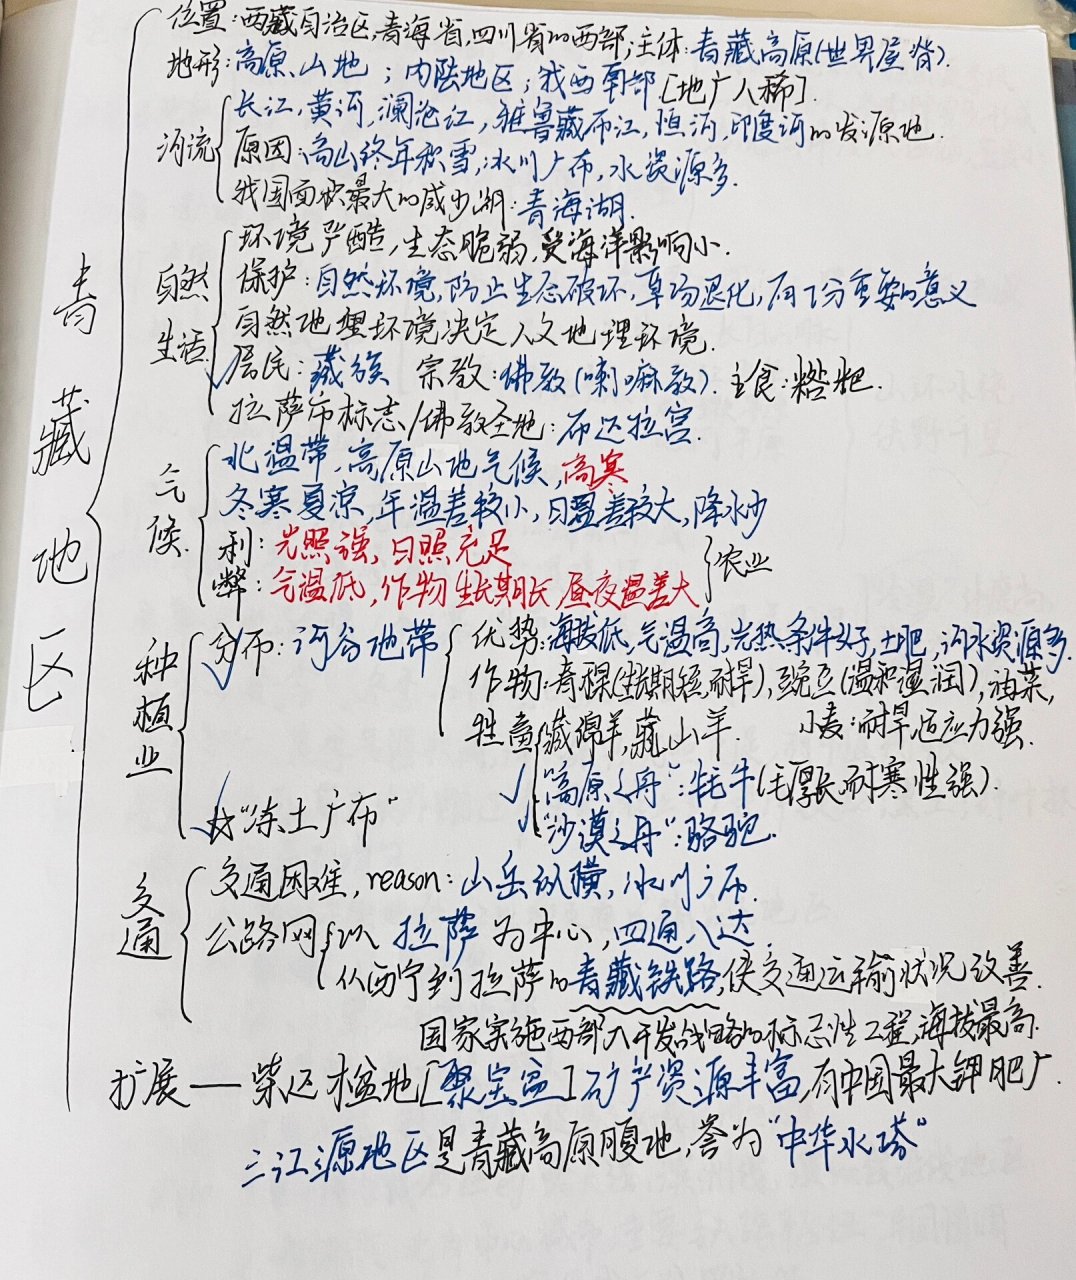 青藏地区
位置:西藏自治区,青海省,四川省的西部;主体:青藏高原(世界屋脊).
地形:高原、山地;内陆地区;我西南部[地广人稀].
河流
长江,黄河,澜沧江,雅鲁藏布江,恒河,印度河的发源地.
原因:高山终年积雪,冰川广布,水资源多.
我国面积最大的咸水湖:青海湖.
自然生活
环境严酷,生态脆弱,受海洋影响小.
保护:自然环境,防止生态破坏,草场退化,有十分重要的意义
自然地理环境决定人文地理环境.
居民:藏族 宗教:佛教(喇嘛教). 主食:糌粑.
拉萨市标志/佛教圣地:布达拉宫.
气候.
北温带,高原山地气候,高寒
冬寒夏凉,年温差较小,日温差较大,降水少
利:光照强,日照充足
弊:气温低,作物生长期长 昼夜温差大
农业
种植业
分布:河谷地带
优势:海拔低,气温高,光热条件好,土肥,河水资源多.
作物:青稞(生长期短,耐旱),豌豆(温和湿润),油菜,
小麦:耐旱,适应力强.
牲畜
藏绵羊,藏山羊.
"高原之舟":牦牛(毛厚长而耐寒性强).
"沙漠之舟":骆驼.
"冻土广布"
交通
交通困难,reason:山岳纵横,冰川广布.
公路网
以 拉萨 为中心,四通八达
从西宁到拉萨的青藏铁路,使交通运输状况改善.
国家实施西部大开发战略的标志性工程,海拔最高.
扩展——柴达木盆地[聚宝盆]矿产资源丰富,有中国最大钾肥厂.
三江源地区是青藏高原腹地,誉为"中华水塔"